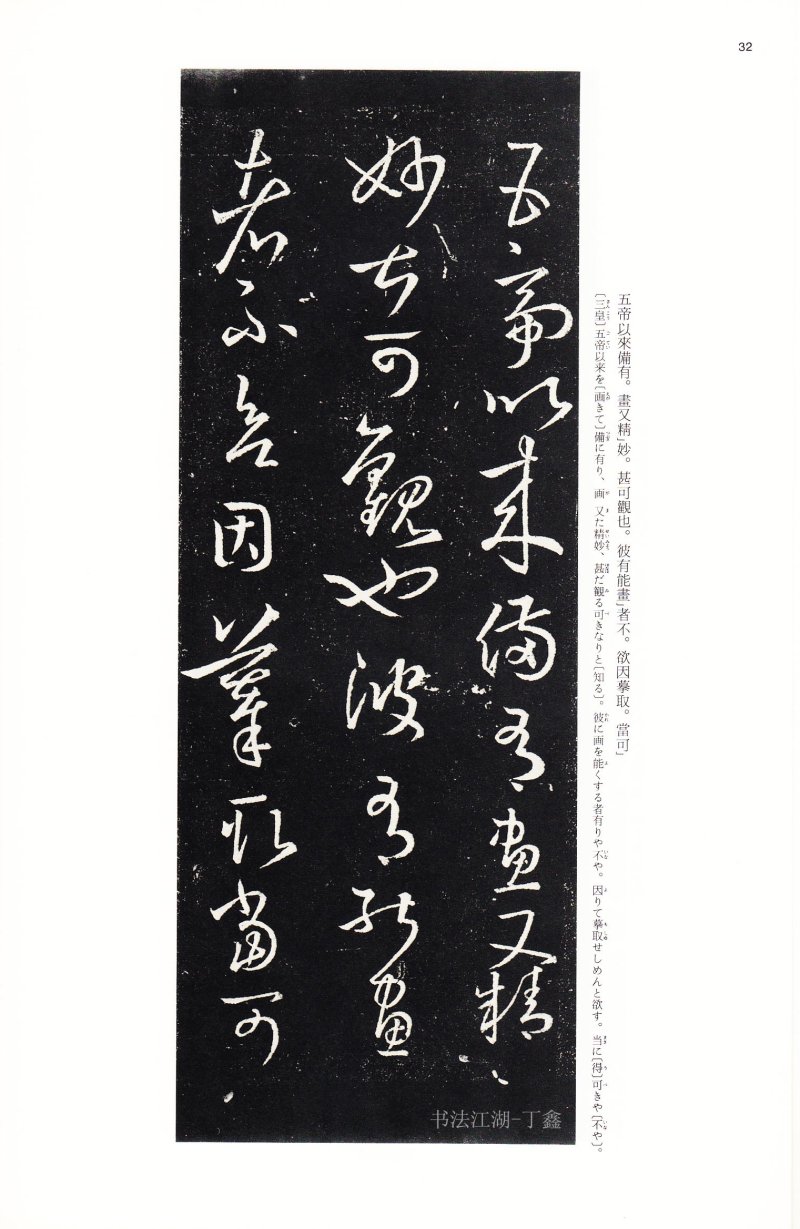 32
五帝以來備有。畫又精」妙。甚可觀也。彼有能畫」者不。欲因摹取。當可」
〔三皇〕五帝以来を〔画きて〕備に有り、画又た精妙、甚だ観る可きなりと〔知る〕。彼に画を能くする者有りや不や。因りて摹取せしめんと欲す。当に〔得〕可きや〔不や〕。
五帝以來備有畫又精
妙甚可觀也彼有能畫
者不欲因摹取當可
书法江湖-丁鑫